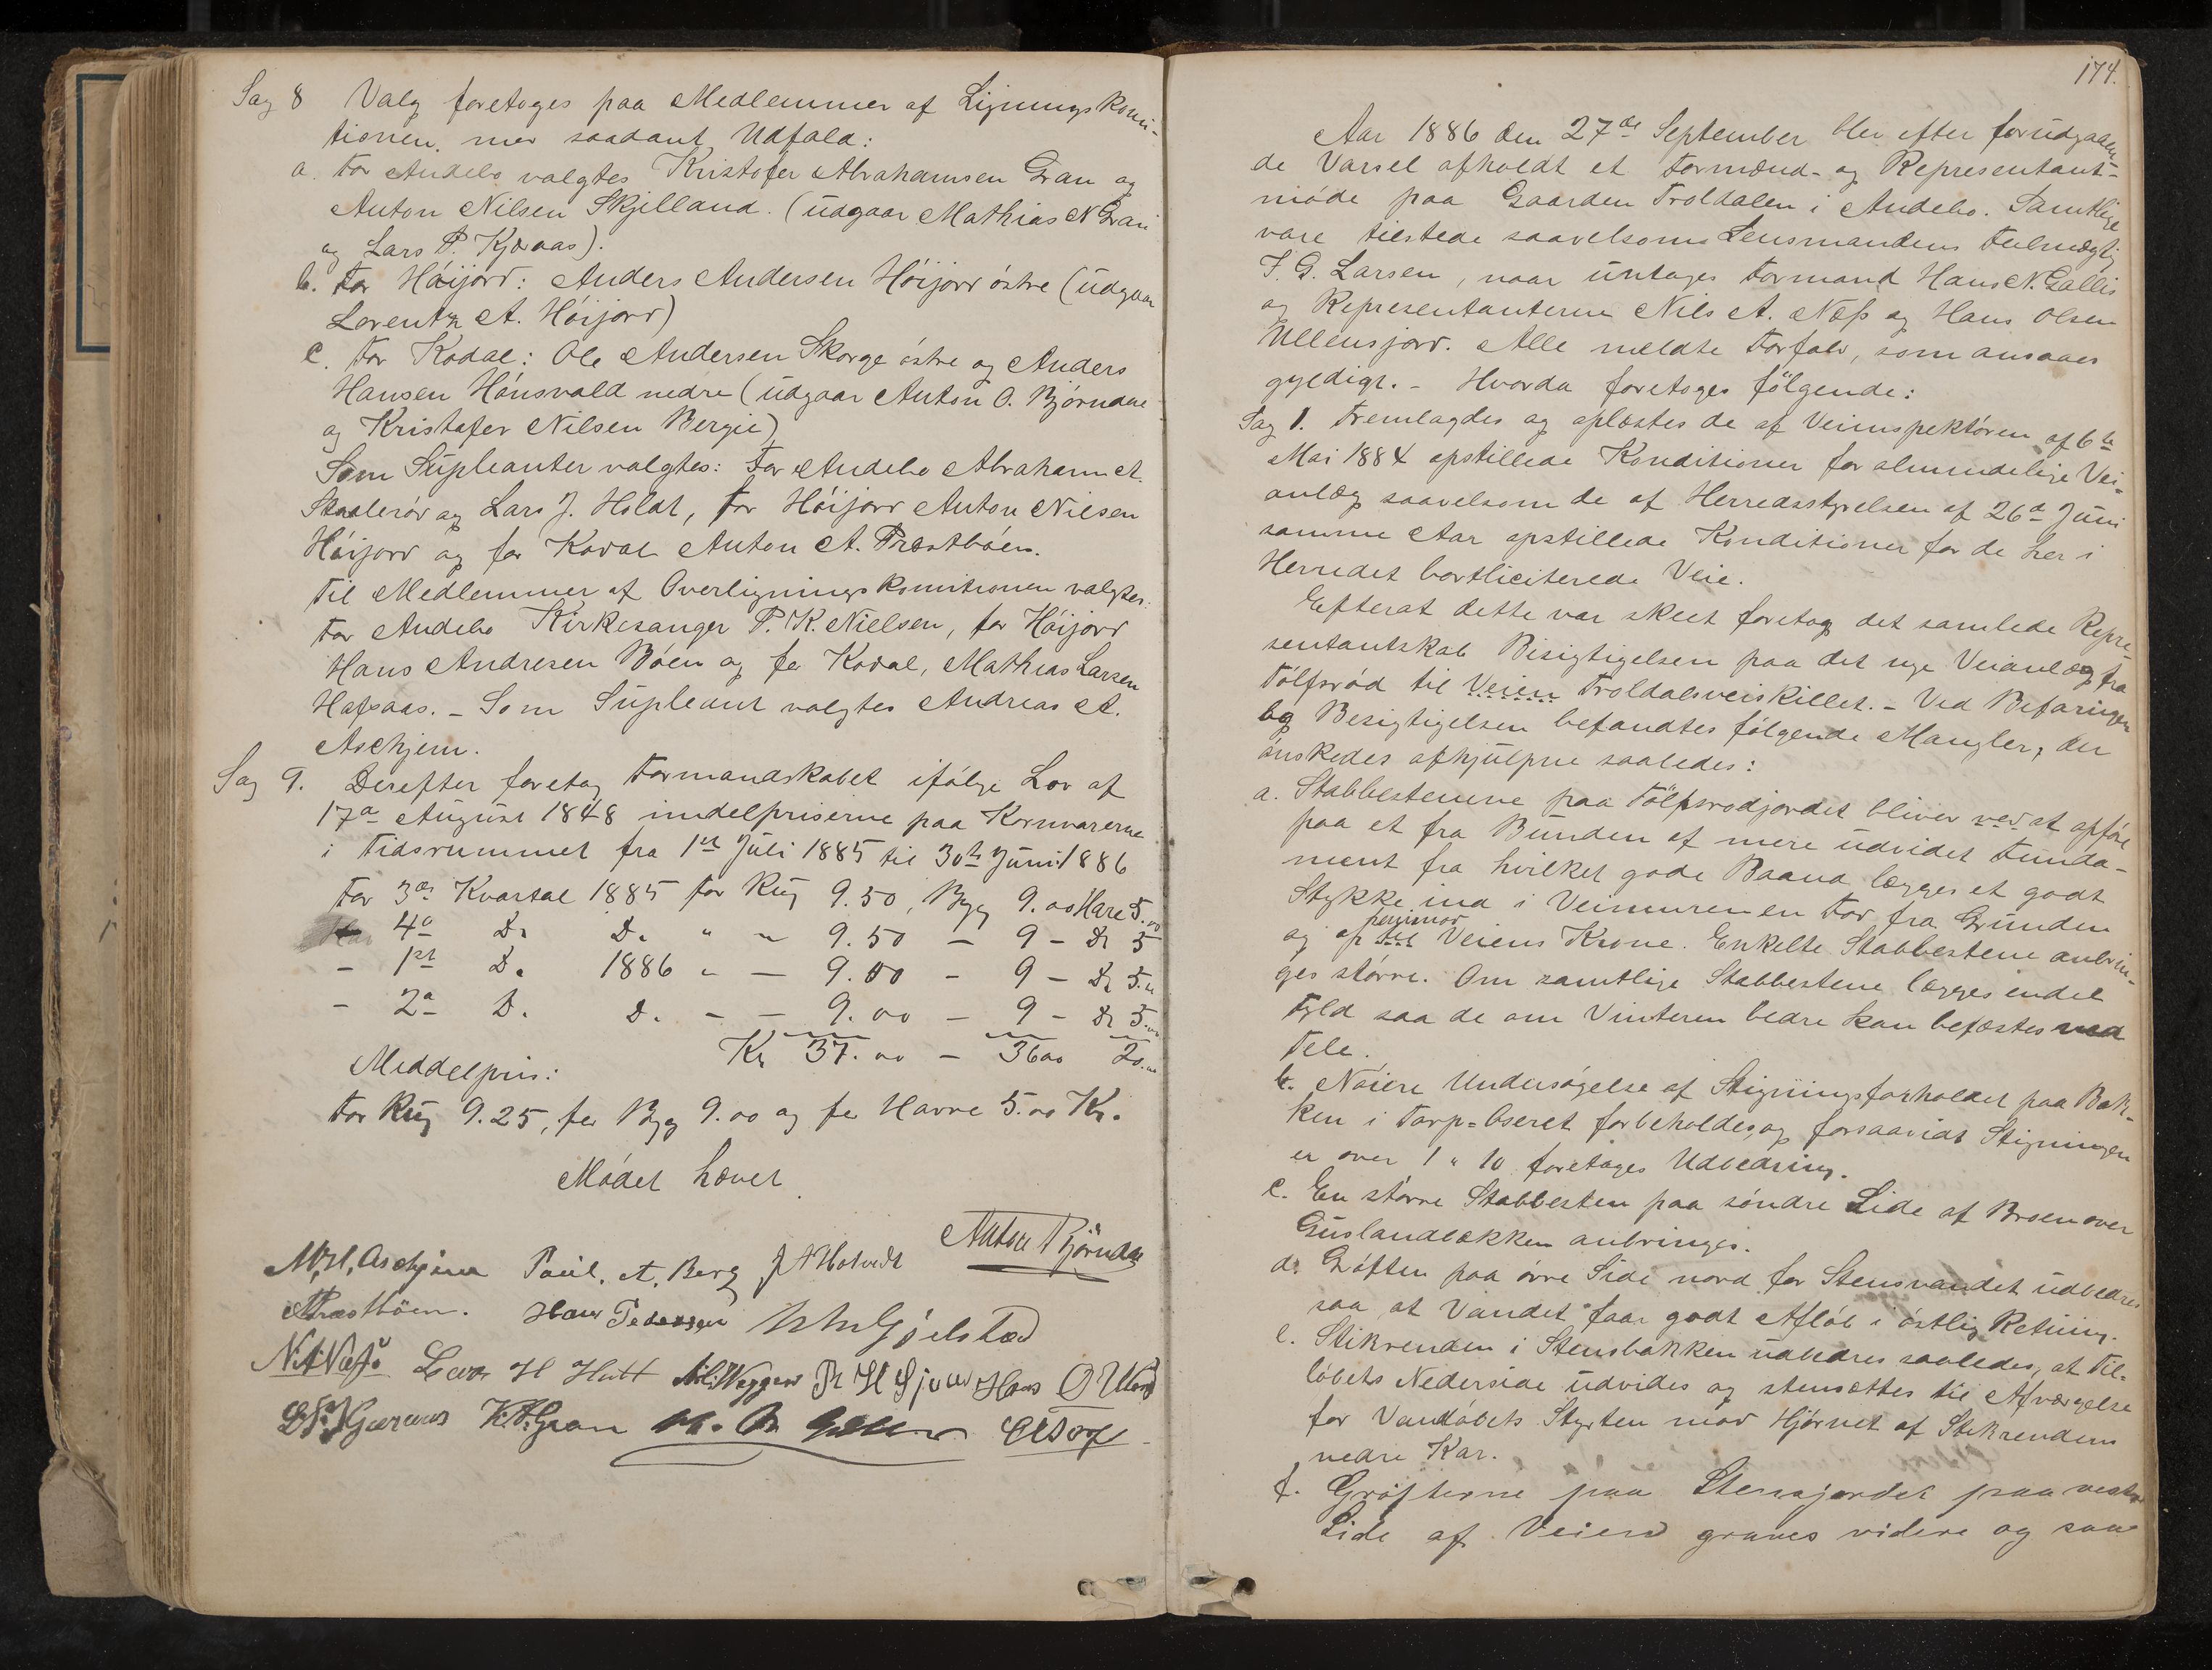 Sag 8 Valg foretoges paa Medlemmer af Ligningskomi-
tionen med saadant Udfald:
a. For Andebo valgtes Kristofer Abrahamsen Gran og
Anton Nilsen Skjelland. (udgaar Mathias N Gran
og Lars P. Kjæraas).
b. For Höijord: Anders Andersen Höijord östre (udgaar
Lorentz A. Höijord)
c. For Kodal: Ole Andersen Skorge östre og Anders
Hansen Hönsvald nedre (udgaar Anton O. Björndal
og Kristofer Nilsen Bergie)
Som Supleanter valgtes: For Andebo Abraham A.
Staalerød og Lars J. Holdt, for Höijord Anton Nilsen
Höijord og for Kodal Anton A. Præstböen.
Til Medlemmer af Overligningskomitionen valgtes:
For Andebo Kirkesanger P. K. Nielsen, for Höijord
Hans Andresen Böen og for Kodal, Mathias Larsen
Hafsaas. – Som Supleant valgtes Andreas A.
Aschjem.
Sag 9. Derefter foretog Formandskabet ifölge Lov af
17d August 1848 middelpriserne paa Kornvarerne
i Tidsrummet fra 1st Juli 1885 til 30te Juni 1886
For 3die Kvartal 1885 for Rug 9.50, Byg 9.00 Havre 5.00
4d Do Do " " 9.50 – 9 – Do 5
– 1st Do 1886 " – 9.00 – 9 – Do 5."
– 2d Do Do – – 9.00 – 9 – Do 5.00
Kr 37.00 – 3600 20.00
Middelpris:
For Rug 9.25, for Byg 9.00 og for Havre 5.00 Kr.
Mödet hævet
M. H. Aschjem Paul. A. Berg J A Holvedt Anton Björndal
APræstböen. Hans Pedersen Gjelstad
N A Næss Lars H Hatt Hans O Ulen
K. A. Gran
174.
Aar 1886 den 27de September blev efter forudgaaen-
de Varsel afholdt et Formænd- og Representant-
möde paa Gaarden Troldalen i Andebo. Samtlige
vare tilstede saavelsom Lensmandens Fulmægtig
F. G. Larsen, naar untages Formand Hans N. Gallis
og Representanterne Nils A. Næss og Hans Olsen
Ullensjord. Alle meldte Forfald, som ansaaes
gyldigt. – Hvorda foretoges fölgende:
Sag 1. Fremlagdes og oplæstes de af Veiinspektören af 6te
Mai 1884 opstillede Konditioner for almindelige Vei-
anlæg saavelsom de af Herredsstyrelsen af 26d Juni
samme Aar opstillede Konditioner for de her i
Herredet bortliciterede Veie.
Efterat dette var skeet foretog det samlede Repre-
sentantskab Bisigtigelsen paa det nye Veianlæg fra
Tölfsröd til Veien Troldalsveiskillet. – Ved Befaringen
og Besigtigelsen befandtes fölgende Mangler, der
önskedes afhjulpne saaledes:
a. Stabbestenene paa Tölfsrodjordet bliver ved at opföre
paa et fra Bunden af mere udvidet Funda-
ment fra hvilket gode Baand lægges et godt
Stykke ind i Veimuren en Fod fra Grunden
og op til Veiens Krone. Enkelte Stabbestene anbrin-
ges större. Om samtlige Stabbestene lægges endel
Fyld saa de om Vinteren bedre kan befæstes ved
Tele.
b. Nöiere Undersögelse af Stigningsforholdet paa Bak-
ken i Torp-Oseret forbeholdes, og forsaavidt Stigningen
er over 1 " 10 foretages Udbedring.
c. En större Stabbesten paa söndre Side af Broen over
Guslandbækken anbringes.
d. Gröften paa övre Side nord for Stensvandet udbedres
saa at Vandet faar godt Aflöb i östlig Retning.
e. Stikrenden i Stensbakken udbedres saaledes, at Til-
löbets Nederside udvides og stensættes til Afværgelse
for Vandlöbets Styrten mod Hjörnet af Stikrendens
nedre Kar.
f. Gröfterne paa Stensjordet paa vestre
Side af Veien graves videre og saa